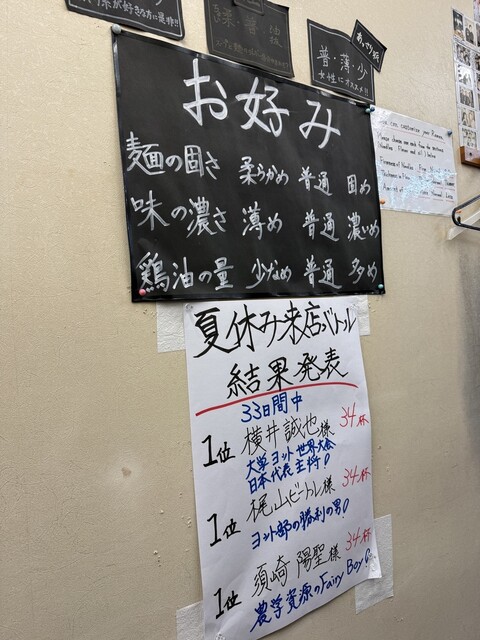 系が好きな方に是非!!
普・薄・少
女性にオススメ!!
あっさり派
お好み
麺の固さ 柔らかめ 普通 固め
味の濃さ 薄め 普通 濃いめ
鶏油の量 少なめ 普通 多め
夏休み来店バトル
結果発表
33日間中
1位 横井誠也様 34杯
大学ヨット世界大会
日本代表主将!
1位 梶山ビートレ様 34杯
ヨット部の勝利の男!
1位 須崎陽聖様 34杯
農学資源のFairy Boy